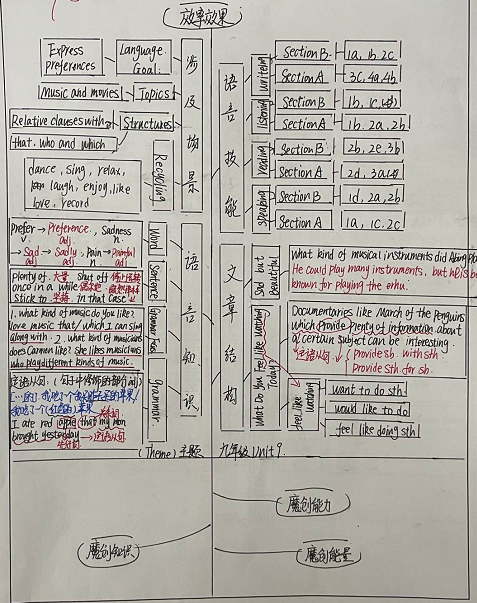 效率效果
Express preferences
Language Goal:
Music and movies
Topics
Relative clauses with
that. who and which
Structures
dance, sing, relax,
laugh, enjoy, like
love, record
Recycling
涉及场景
Prefer → Preference, Sadness
v. adj. n.
→ Sad → Sadly, Pain → Painful
adj adj n adj
Word
plenty of. 大量 shut off
once in a while 偶尔地
stick to 坚持. in that case
Sentence
1. what kind of music do you like?
love music that/which I can sing
along with. 2. what kind of musicians
does Carmen like? She likes musicians
who play different kinds of music.
Grammar Focus
定语从句:
I ate red apple that my mom
brought yesterday → 定语从句
grammar.
语言知识
语言技能
writeing
Section B
1a, 1b. 2c
Section A
3c, 4a, 4b
listening
Section B
1b, 1c,
Section A
1b. 2a, 2b
reading
Section B
2b, 2e, 3b
Section A
2d, 3a
speaking
Section B
1d, 2a, 2b
Section A
1a, 1c. 2c
文章结构
Sad but Beautiful
what kind of musical instruments did Abing play
He could play many instruments, but he is be
known for playing the erhu.
What Do You Feel Like Watching Today?
Documentaries like March of the Penguins
which Provide plenty of information about
a certain subject can be interesting.
定语从句
Provide sb. with sth
Provide sth for sb.
feel like watching
want to do sth
would like to do
feel like doing sth
(Theme) 主题 九年级 Unit 9.
魔创能力
魔创知识
魔创能量